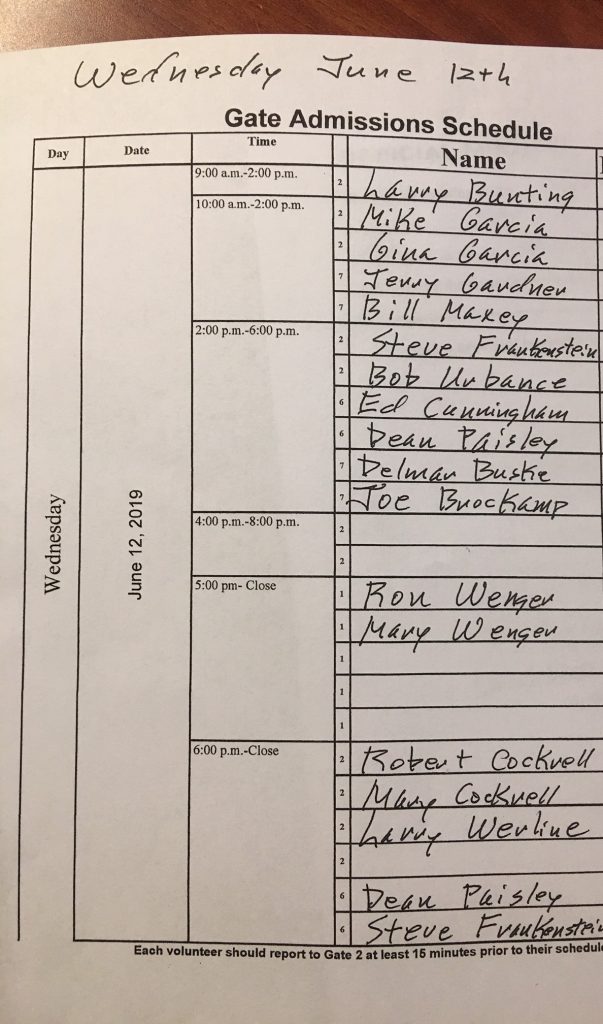 Wednesday June 12th
Gate Admissions Schedule
Day Date Time Name
9:00 a.m.-2:00 p.m. 2 Larry Bunting
10:00 a.m.-2:00 p.m. 2 Mike Garcia
2 Gina Garcia
7 Jerry Gardner
7 Bill Maxey
2:00 p.m.-6:00 p.m. 2 Steve Frankenstein
2 Bob Urbance
6 Ed Cunningham
6 Dean Paisley
7 Delmar Buske
7 Joe Brockamp
Wednesday June 12, 2019
4:00 p.m.-8:00 p.m. 2
2
5:00 pm- Close 1 Ron Wenger
1 Mary Wenger
1
1
1
6:00 p.m.-Close 2 Robert Cockrell
2 Mary Cockrell
2 Larry Werline
2
6 Dean Paisley
6 Steve Frankenstein
Each volunteer should report to Gate 2 at least 15 minutes prior to their schedule